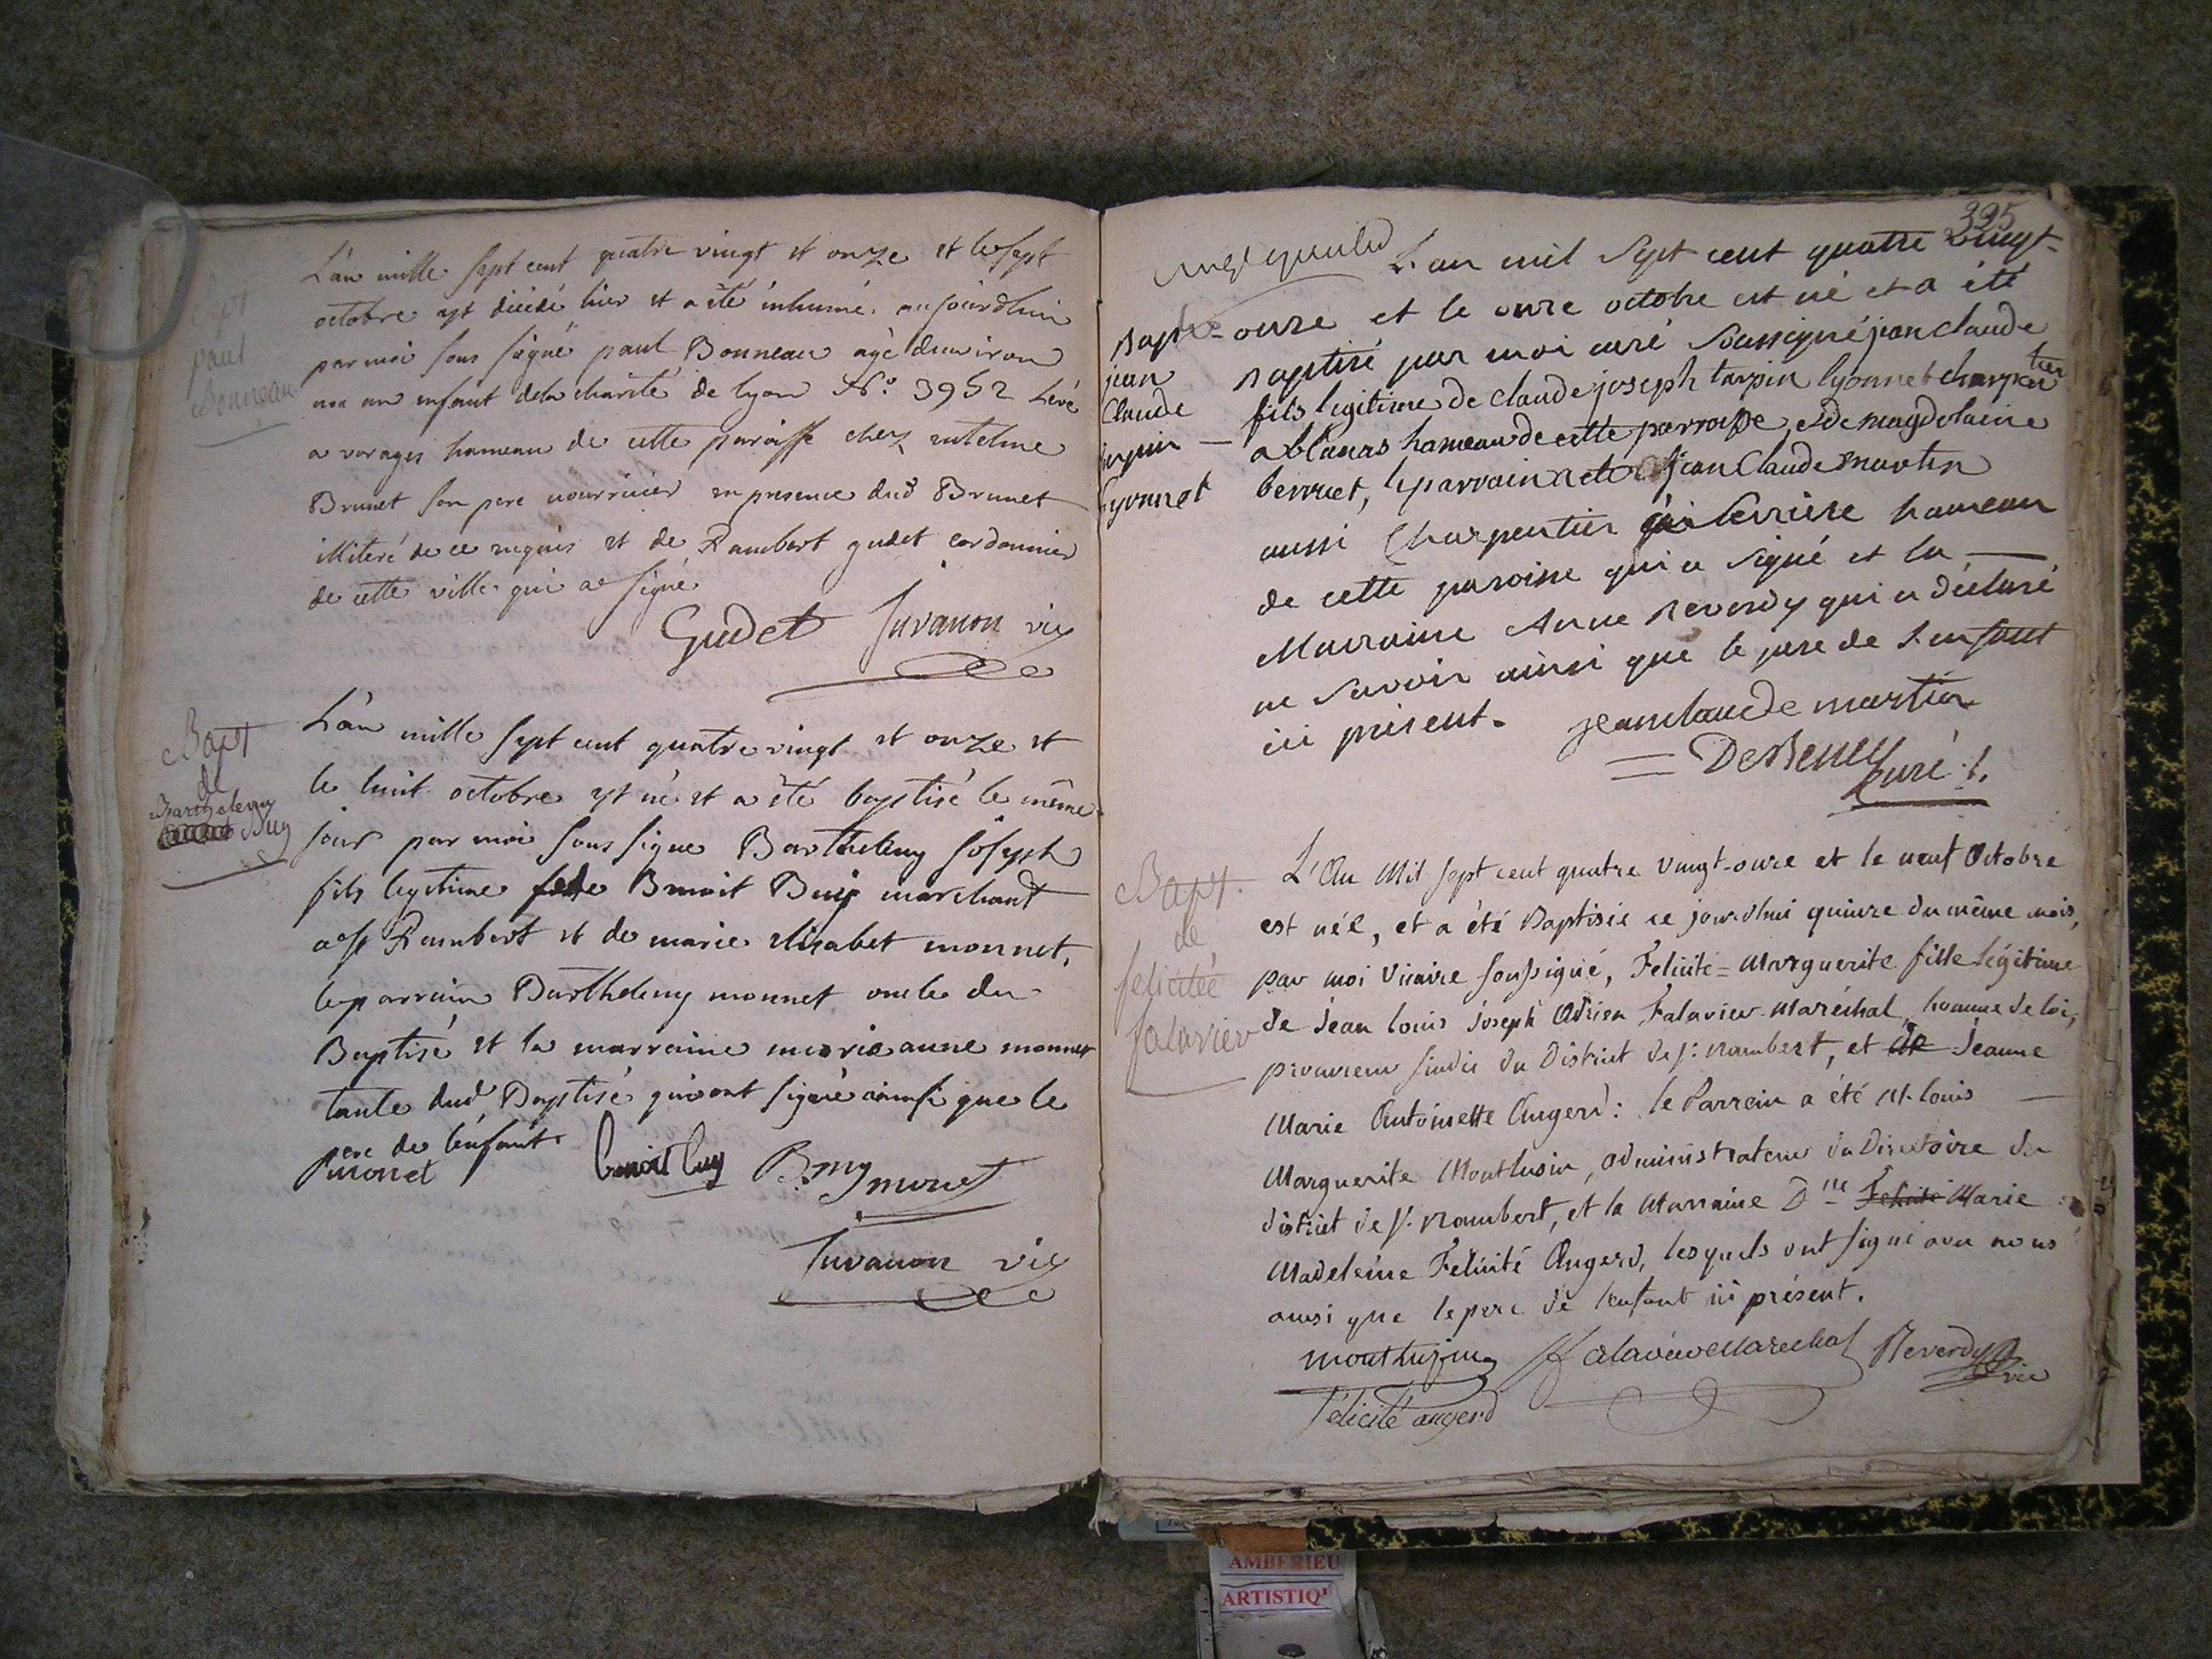 Sept
paul
Bonneau
L'an mille sept cent quatre vingt et onze et le sept
octobre est décédé hier et a été inhumé aujourdhui
par moi sous signé paul Bonneau agé denviron
un an enfant dela charité de lyon N.º 3952 Levé
a varages hameau de cette paroisse chez antelme
Brunet son pere nourricier en presence dud Brunet
illiteré de ce requis et de Rambert gudet cordonnier
de cette ville qui a signé
Gudet Juvanon vic
Bapt
de
Barthelemy
Buy
L'an mille sept cent quatre vingt et onze et
le huit octobre est né et a été baptisé le même
jour par moi sous signe Barthelemy joseph
fils legitime de Benoit Buy marchant
a st Rambert et de marie elisabet monnet,
le parrain Barthelemy monnet oncle du
Baptisé et la marraine marie anne monnet
tante dud Baptisé qui ont signé ainsi que le
pere de lenfant
monet benoit buy B.my monet
Juvanon vic
395
L'an mil sept cent quatre vingt-
Bapt- onze et le onze octobre est né et a été
jean baptisé par moi curé soussigné jean claude
Claude fils legitime de claude joseph tarpin lyonnet charpentier
tarpin — a blanas hameau de cette parroisse, et de magdelaine
lyonnet berruet, le parrain a été jean Claude martin
aussi Charpentier a serriere hameau
de cette paroisse qui a signé et la —
Marraine Anne Reverdy qui a déclaré
ne savoir ainsi que le pere de l'enfant
ici présent. jeanclaude martin
= DeBeney
curé .
Bapt.
de
felicitée
falavier
L'An Mil sept cent quatre vingt-onze et le neuf Octobre
est née, et a été Baptisée ce jourdhui quinze du même mois,
par moi Vicaire soussigné, Felicité=Marguerite fille légitime
de Jean louis Joseph Adrien Falavier-Maréchal, homme de loi,
procureur sindic du District de st. Rambert, et de Jeanne
Marie Antoinette Augerd: le Parrein a été M. louis —
Marguerite Montluzin, administrateur du Directoire du
district de st. Rambert, et la Marraine Dlle Felicité Marie
Madeleine Felicité Augerd, lesquels ont signé avec nous
ainsi que le pere de lenfant ici présent.
montluzin falavierMarechal Reverdy vic
Félicité augerd
AMBERIEU
ARTISTIQ